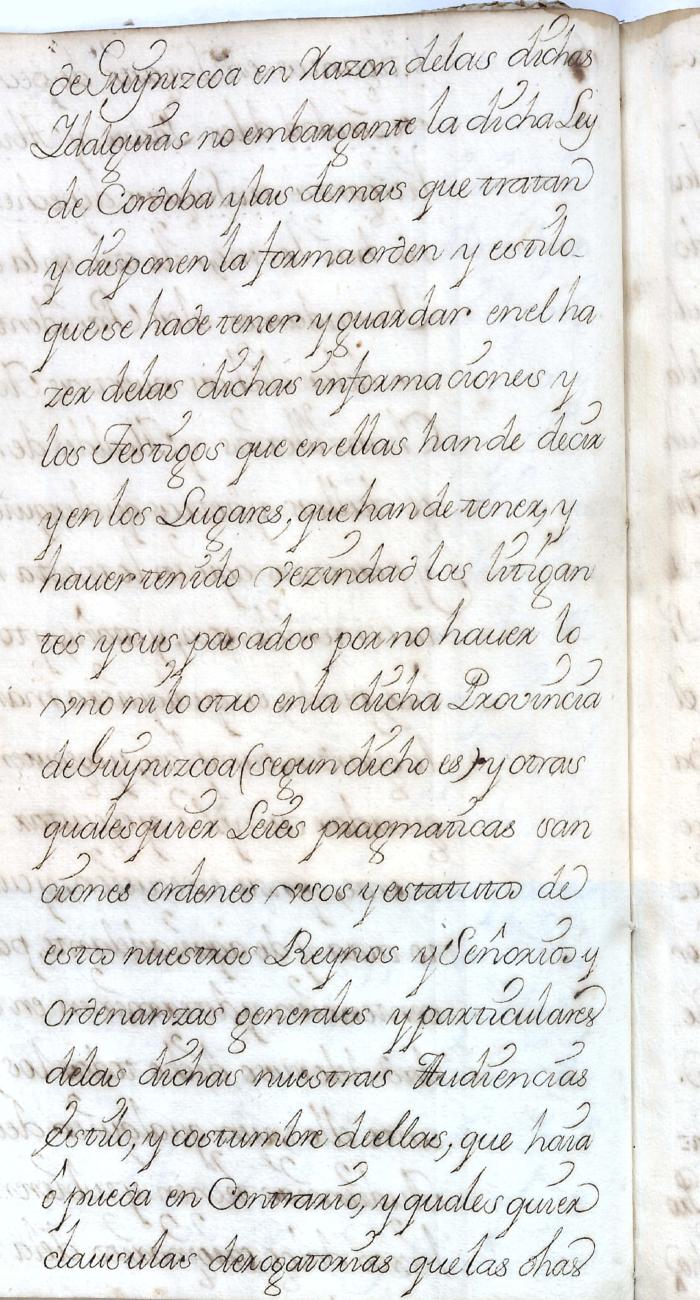 de Guypuzcoa en Razon delas dichas
Idalguias no embargante la dicha Ley
de Cordoba ylas demas que tratan
y disponen la forma orden y estilo
quese hade tener y guardar enel ha
zer delas dichas informaciones y
los Testigos que enellas hande decir
yen los Lugares, que han de tener, y
hauer tenido vezindad los litigan
tes ysus pasados por no hauer lo
vno ni lo otro enla dicha Provincia
de Guypuzcoa (segun dicho es) y otras
qualesquier Leies pragmaticas san
ciones ordenes vsos y estatutos de
estos nuestros Reynos y Señorios y
Ordenanzas generales y particulares
delas dichas nuestras Audiencias
Estilo, y costumbre deellas, que haia
ô pueda en Contrario, y quales quier
clausulas derogatorias que las dhas